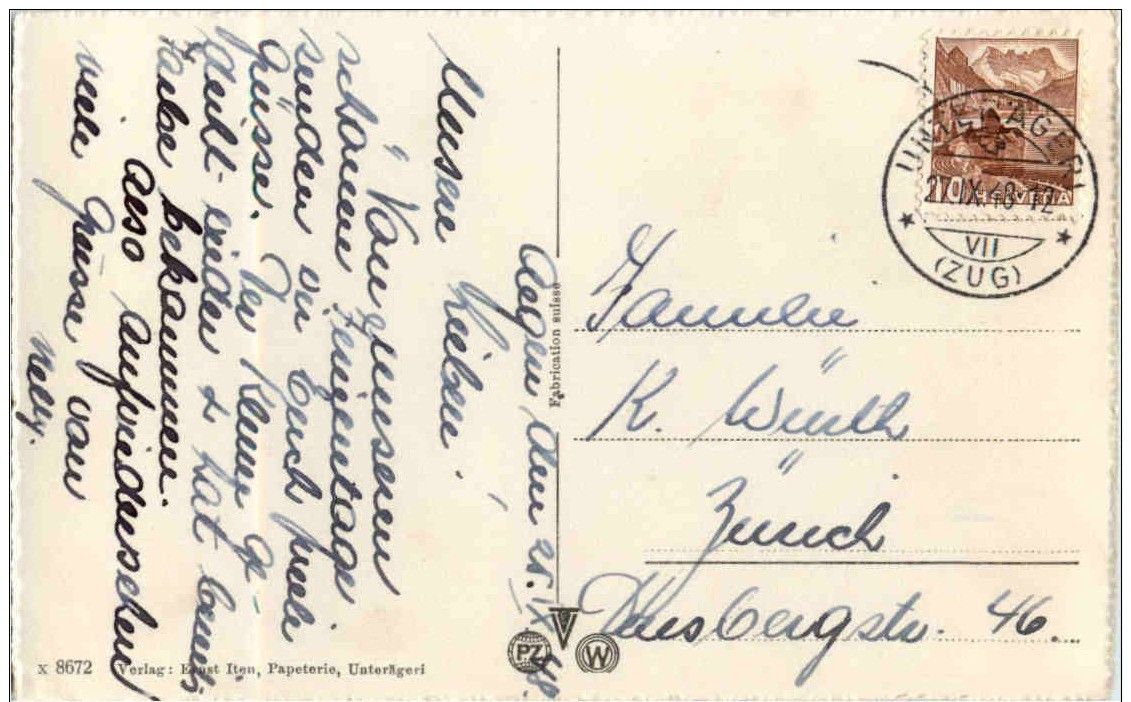 Aegeri den 25. IX. 48.
Unsere Lieben!
Von unseren
schönen Ferientage
senden wir Euch viele
Grüsse. Der Kleine ge-
deiht wieder & hat bereits
Farbe bekommen.
Also Aufwiedersehen
viele Grüsse von
Nelly.
Fabrication suisse
UNTERÄGERI
27.IX.48-12
VII
(ZUG)
HELVETIA
Familie
K. Würth
Zürich
46.
PZ
W
X 8672 Verlag: Ernst Iten, Papeterie, Unterägeri